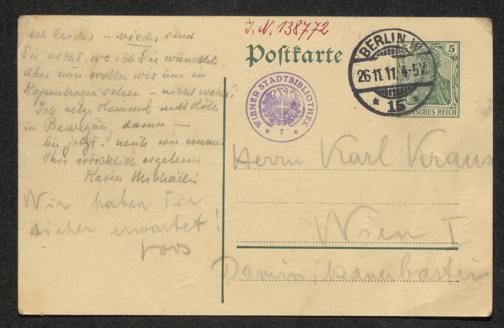 I. N. 138772
Postkarte
BERLIN W
26.11.11. 4-5N.
* 15 *
5
DEUTSCHES REICH
WIENER STADTBIBLIOTHEK
* 7 *
Ach leider – wieder sind
Sie nicht, wo ich Sie wünsche
Aber nun wollen wir uns in
Kopenhagen sehen – nicht wahr?
Ich setze Himmel und Hölle
in Bewegung, darum –
bis jetzt – wie immer
Ihre wirklich ergebene
Karin Michaëlis
Wir haben Sie
sicher erwartet!
Loos
Herrn Karl Kraus
Wien I
Dominikanerbastei